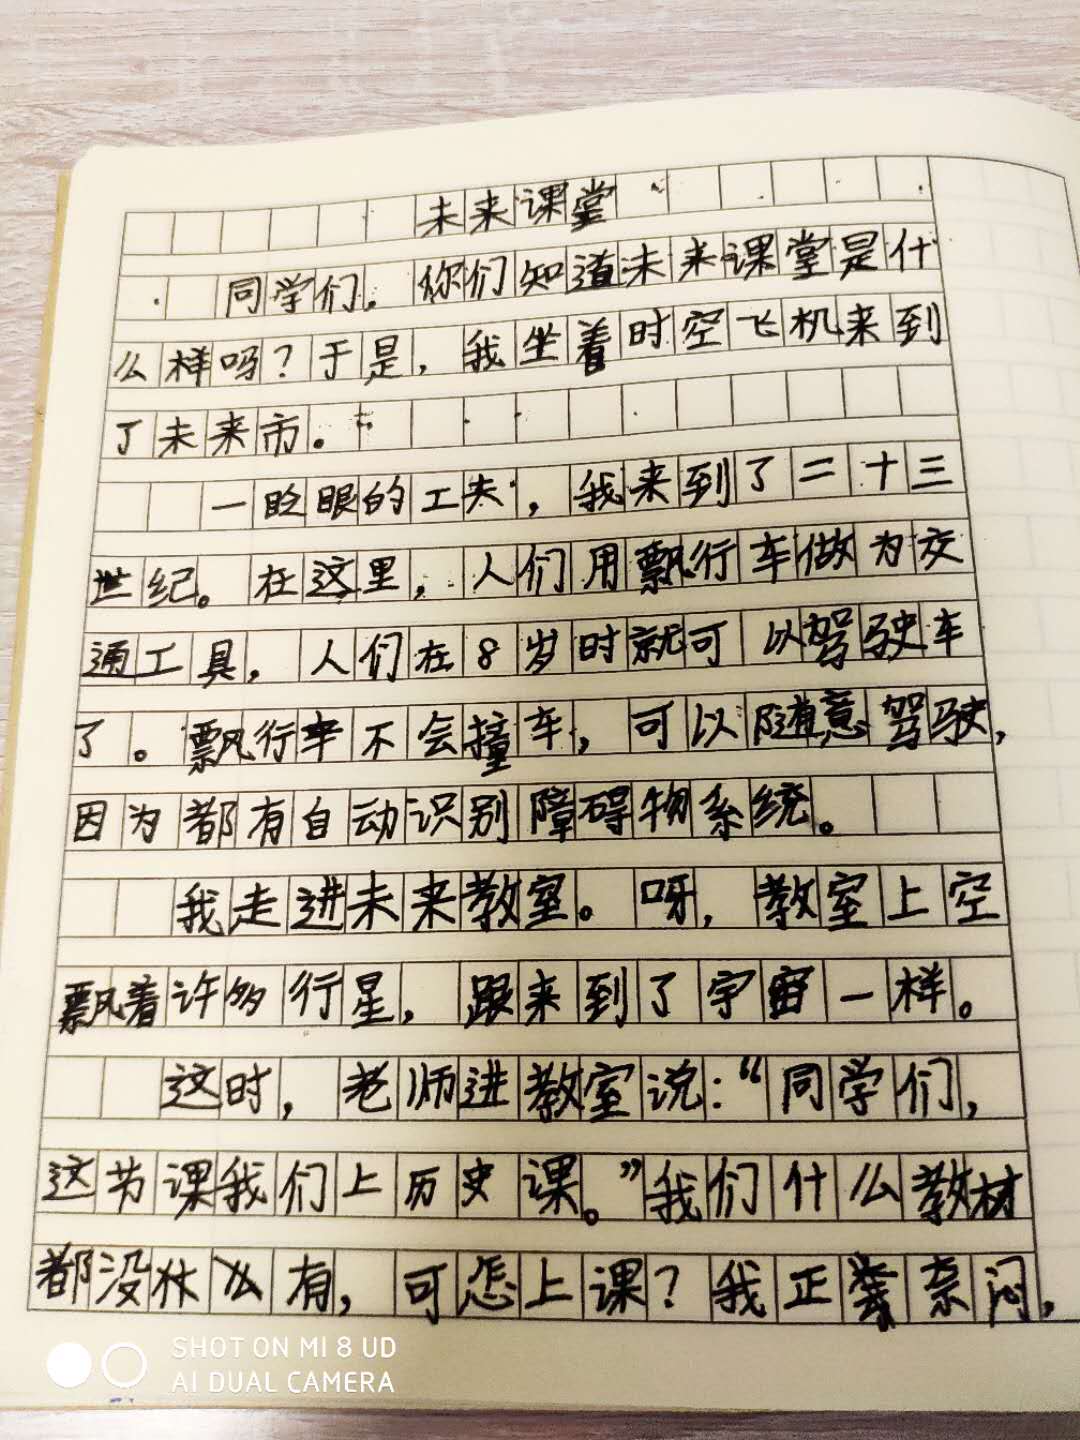 未来课堂
同学们。你们知道未来课堂是什
么样吗？于是，我坐着时空飞机来到
了未来市。
一眨眼的工夫，我来到了二十三
世纪。在这里，人们用飘行车做为交
通工具，人们在8岁时就可以驾驶车
了。飘行车不会撞车，可以随意驾驶，
因为都有自动识别障碍物系统。
我走进未来教室。呀，教室上空
飘着许多行星，跟来到了宇宙一样。
这时，老师进教室说：“同学们，
这节课我们上历史课。”我们什么教材
都没有，可怎上课？我正奈闷，
SHOT ON MI 8 UD
AI DUAL CAMERA